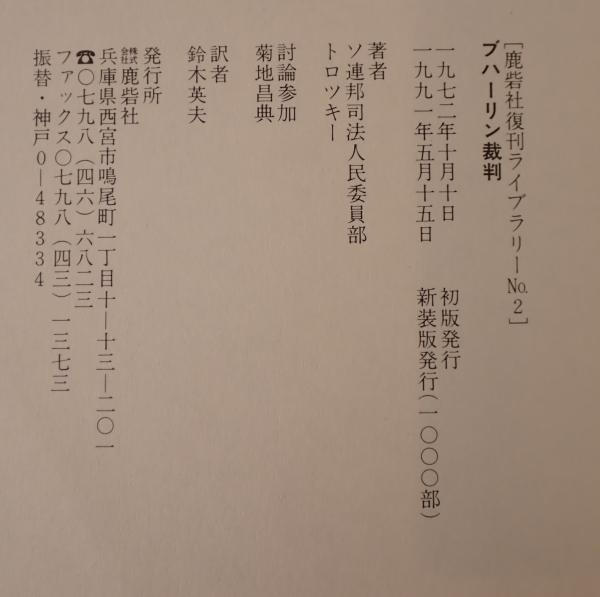 [鹿砦社復刊ライブラリーNo.2]
ブハーリン裁判
一九七二年十月十日　初版発行
一九九一年五月十五日　新装版発行(一〇〇〇部)
著者
ソ連邦司法人民委員部
トロツキー
討論参加
菊地昌典
訳者
鈴木英夫
発行所
株式会社鹿砦社
兵庫県西宮市鳴尾町一丁目十―十三―二〇一
☎〇七九八(四六)六八二三
ファックス〇七九八(四三)一三七三
振替・神戸0―48334